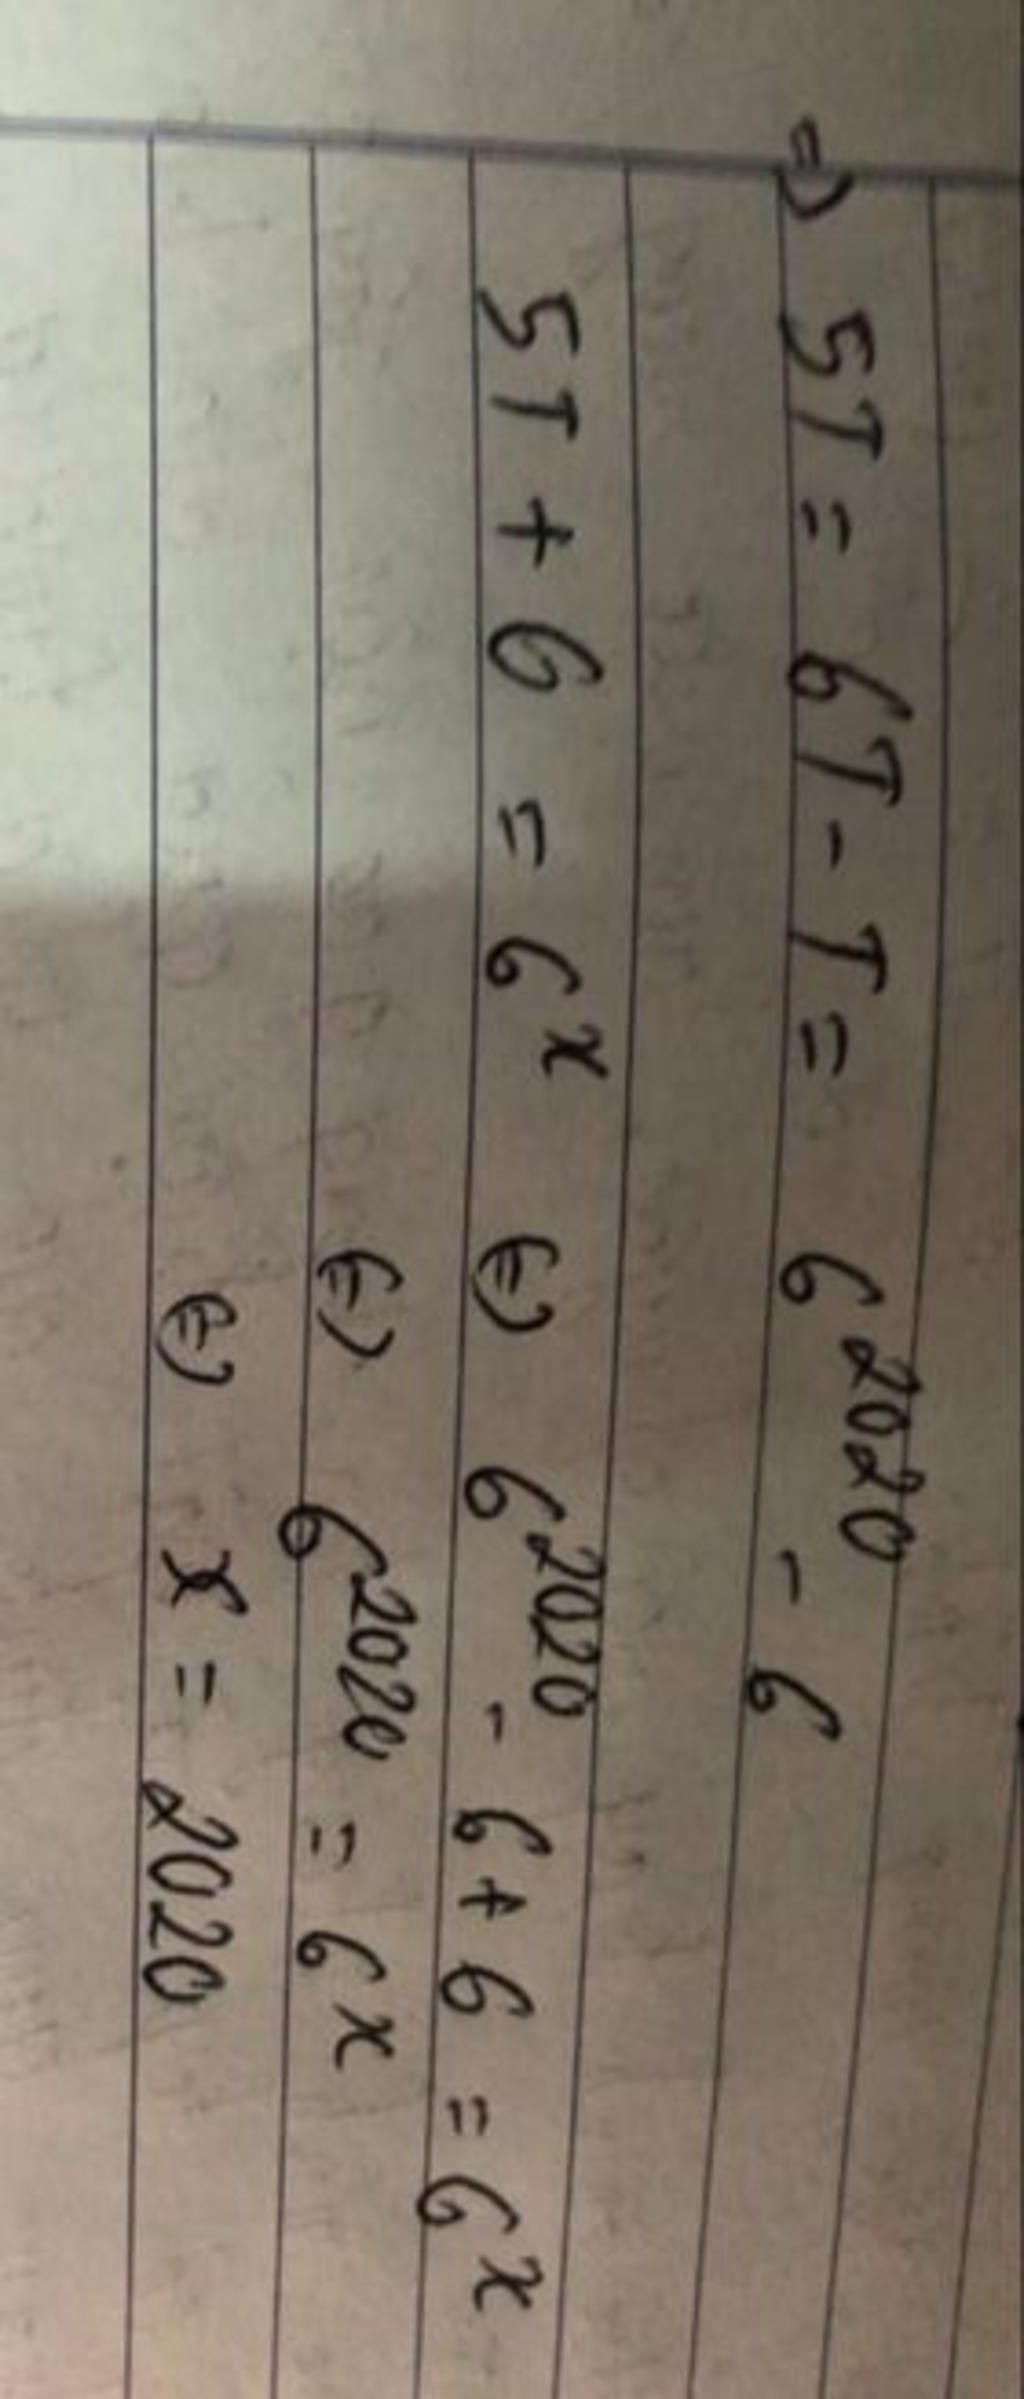 => 5T = 6T - T = 6^2020 - 6
5T + 6 = 6^x (=) 6^2020 - 6 + 6 = 6^x
(=) 6^2020 = 6^x
(=) x = 2020